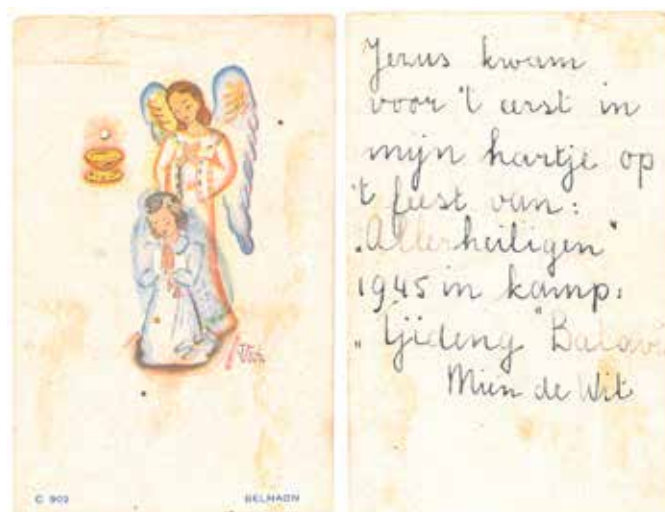 C 902
BELMAON
Jezus kwam
voor 't eerst in
mijn hartje op
't feest van:
"Allerheiligen"
1945 in kamp:
"Tjideng" Batav
Mien de Wit